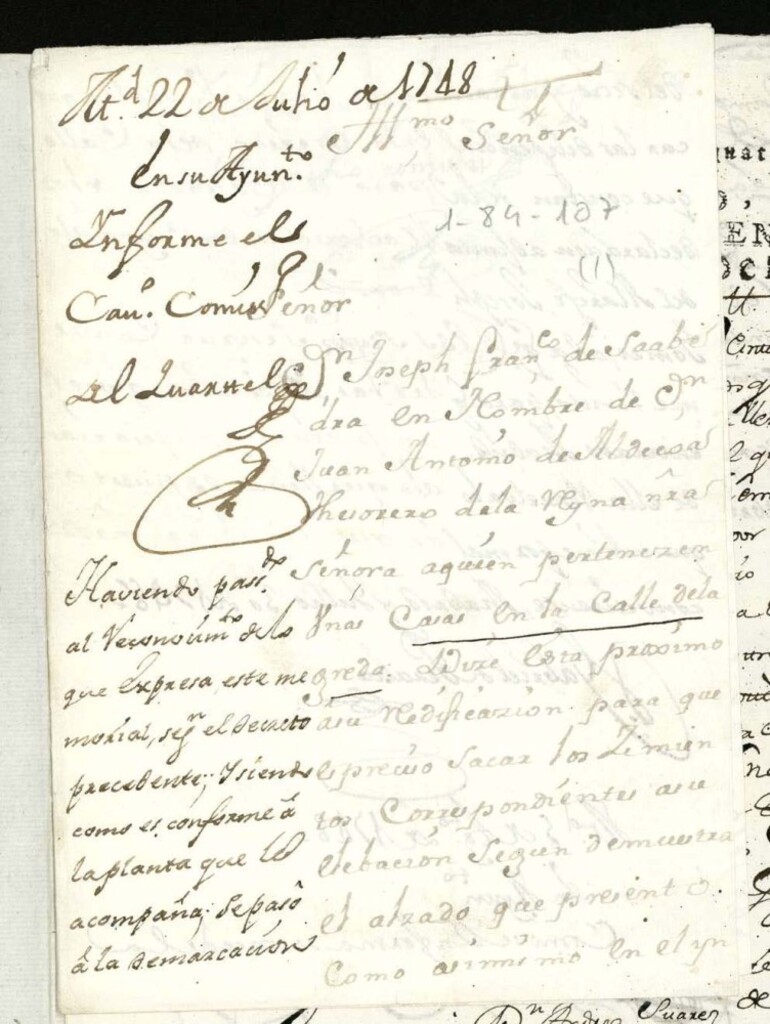 Md. 22 de Julio de 1748
en su Ayunto.
Informe el
Cavo. Comis
al Quartel
Haviendo pasdo.
al Reconocimto. de lo
que expresa este me
morial, segn el decreto
precedente; y siendo
como es, conforme â
la planta que le
acompaña; se pasô
â la demarcacion
Illmo Señor
1-84-107
(1)
Señor
Dn Joseph Franco de Saabe
dra en Nombre de Dn
Juan Antonio de Aldecoa
thesorero de la Reyna nra
Señora aquien pertenezen
Vnas Casas en la Calle de la
greda: Dize esta proximo
asu Redificazion para que
es preciso sacar los Zimien
tos Correspondientes asu
elebacion segun demuestra
el alzado que presento.
Como asimismo en el yn
Dn Andres Suarez